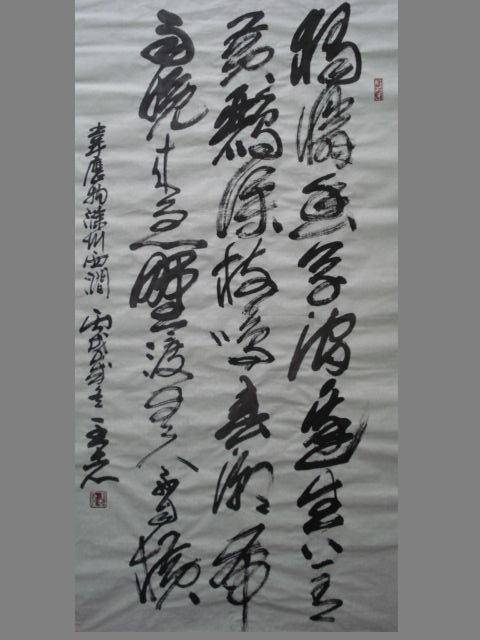 獨憐幽草澗邊生上有
黄鸝深樹鳴春潮帶
雨晚来急野渡無人舟自横
韋應物滁州西澗 丙戌歲